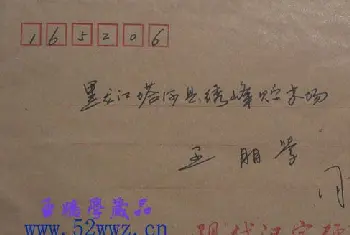 165206
黑龙江塔河县绣峰贮木场
王鹏学
王鹏学藏品
www.52wwz.cn
现代汉字硬